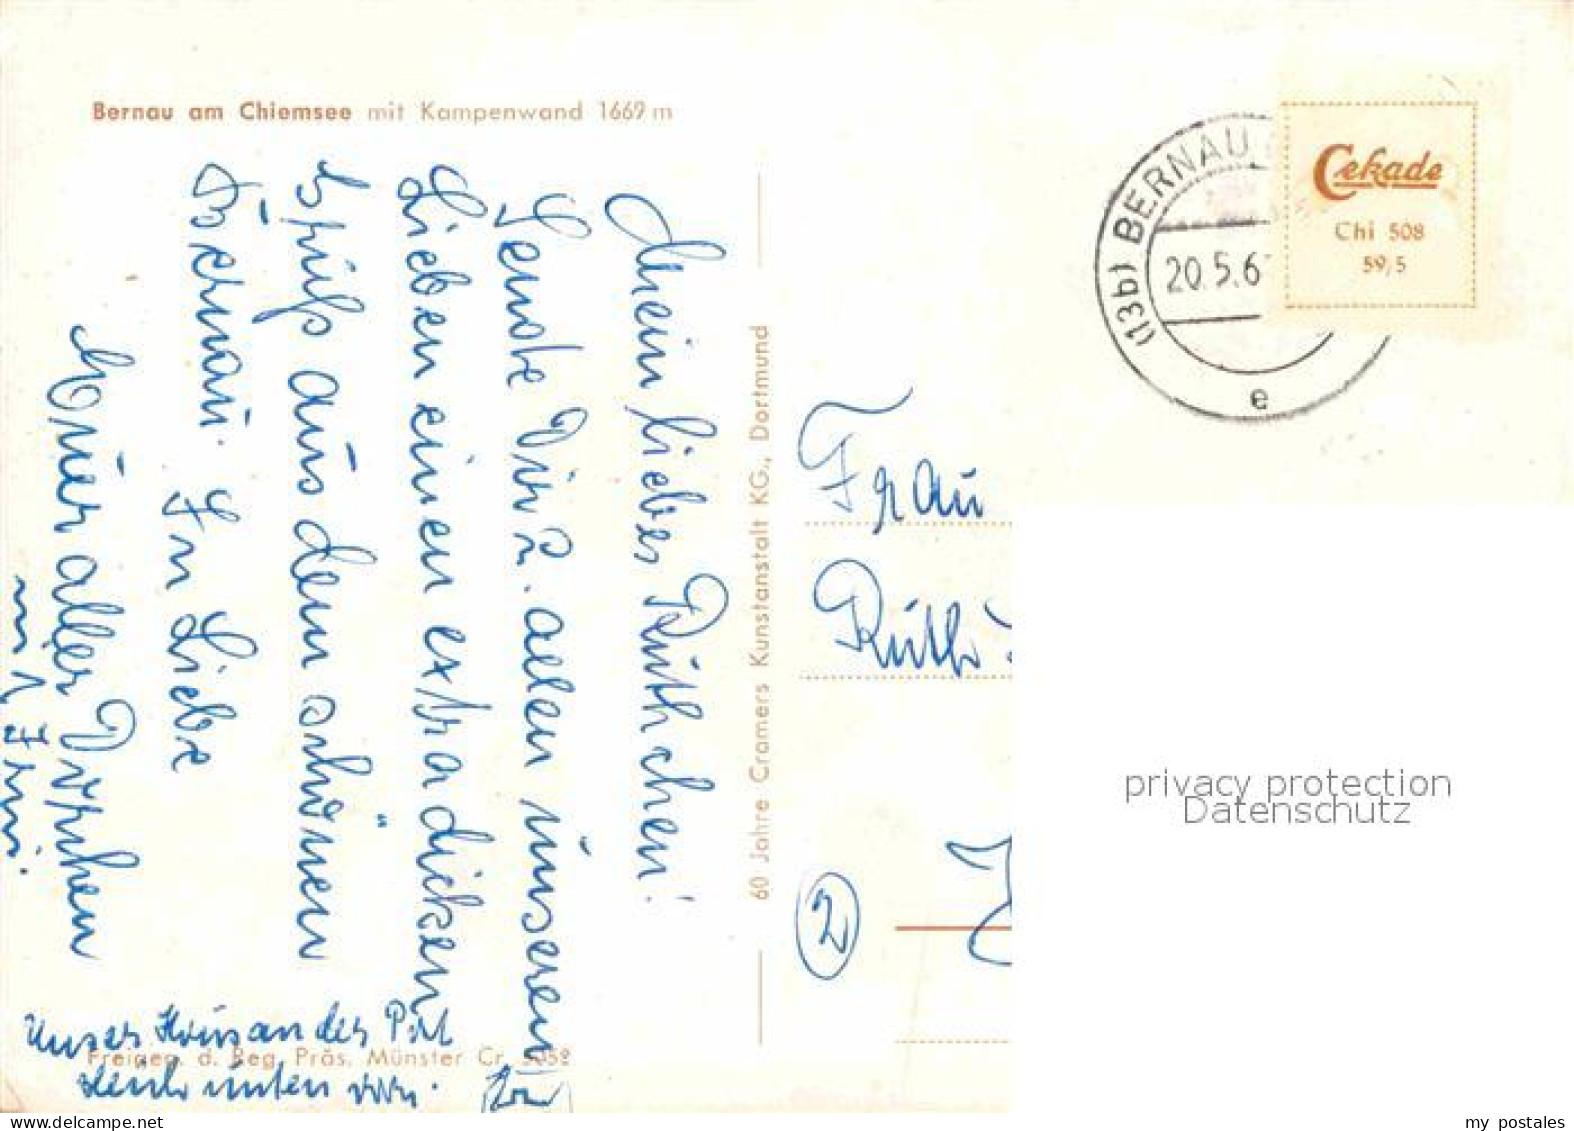 Bernau am Chiemsee mit Kampenwand 1669 m
Mein liebes Ruthchen!
Sende Dir u. allen unseren
Lieben einen extradicken
Gruß aus dem schönen
Bernau. In Liebe
Euer aller
Unser Haus an der
unten
Freigeg. d. Reg. Präs. Münster Cr.
60 Jahre Cramers Kunstanstalt KG., Dortmund
(13b) BERNAU
20.5.6
e
Cekade
Chi 508
59/5
Frau
Ruth
2
privacy protection
Datenschutz
www.delcampe.net
my postales